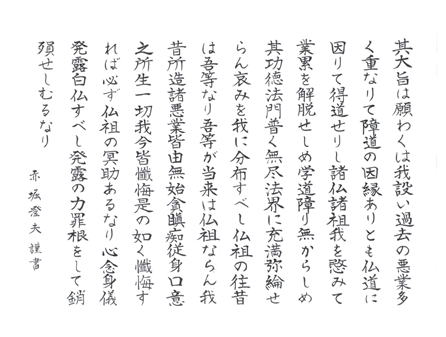 其大旨は願わくは我設い過去の悪業多
く重なりて障道の因縁ありとも仏道に
因りて得道せりし諸仏諸祖我を愍みて
業累を解脱せしめ学道障り無からしめ
其功徳法門普く無尽法界に充満弥綸せ
らん哀みを我に分布すべし仏祖の往昔
は吾等なり吾等が当来は仏祖ならん我
昔所造諸悪業皆由無始貪瞋痴従身口意
之所生一切我今皆懺悔是の如く懺悔す
れば必ず仏祖の冥助あるなり心念身儀
発露白仏すべし発露の力罪根をして銷
殞せしむるなり
赤堀澄夫謹書